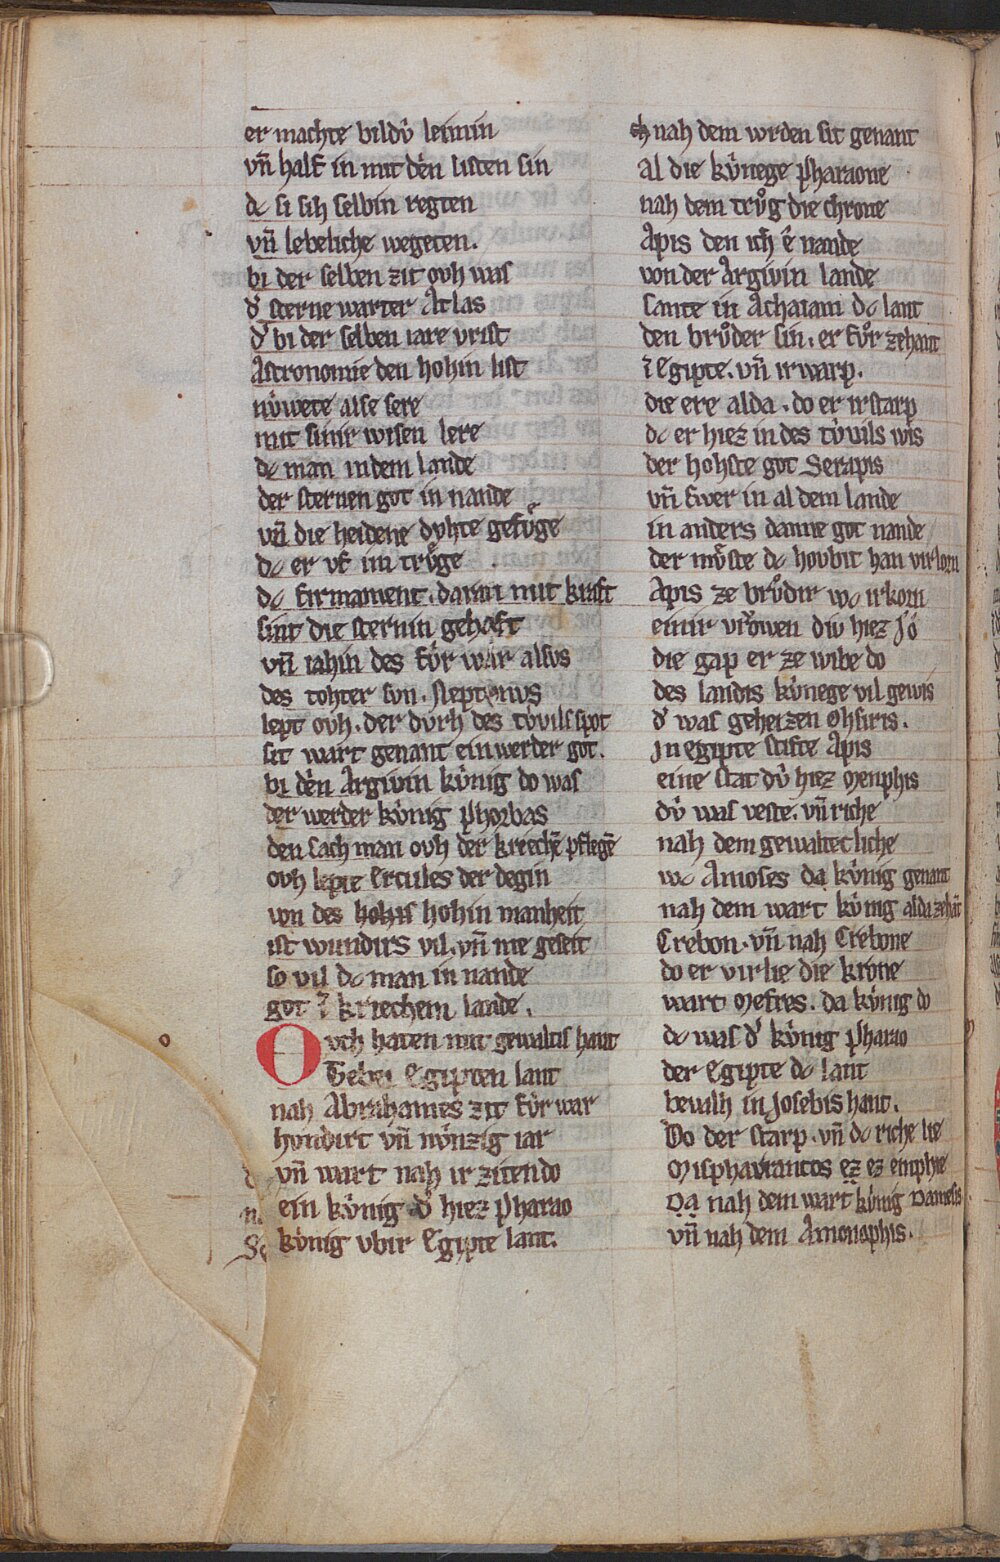 er machte bildv̍ leimin
vn̄ half in mit dên listen sin
dc si sih selbin regten
vn̄ lebeliche wegeten.
bi der selben zit ovh was
d̾ sterne warter Atlas
d̾ bi der selben iare vrist
Astronomie den hohin list
nv̍wete alse sere
mit sinir wisen lere
dc man indem lande
der sternen got in nande
vn̄ die heidene dvhte gefvͦge
dc er vf im trvͦge
dc firmament. daran mit kraft
sint die sternin gehaft
vn̄ iahin des fv̍r war alsvs
des tohter svn. Neptvnvs
lept ovh. der dvrh des tv̍vils spot
sit wart genant ein werder got.
bi dên Argivin kv̍nig do was
der werder kv̍nig Phorbas
den sach man ovh der kriechē pflegē
ovh lepte Ercules der degin
von des hohis hohin manheit
ist wundirs vil. vn̄ me geseit
so vil dc man in nande
got ī kriechem lande.
Ovch haten mit gewaltis hant
Thebei Egipten lant
nah Abrahames zit fv̍r war
hundirt vn̄ nv̍nzig iar
vn̄ wart nah ir ziten do
ein kv̍nig d̾ hiez Pharao
kv̍nig vbir Egipte lant.
ch nah dem wrden sit genant
al die kv̍nege Pharaone
nah dem trvͦg die chrone
Apis den ich ê nande
von der Argivin lande
sante in Achaiam dc lant
den brvͦder sin. er fvͦr zehant
ī Egipte. vn̄ irwarp.
die ere alda. do er irstarp
dc er hiez in des tv̍vils wis
der hohste got Serapis
vn̄ swer in al dem lande
in anders danne got nande
der mvͦste dc hovbit han virlorn
Apis ze brvͦdir wc irkorn
einir vrowen div hiez Jo
die gap er ze wibe do
des landis kv̍nege vil gewis
d̾ was geheizen Ohsiris.
In egipte stifte Apis
eine stat dv̍ hiez Menphis
dv̍ was veste. vn̄ riche
nah dem gewaltecliche
wc Amoses da kv̍nig genant
nah dem wart kv̍nig alda zehāt
Crebon. vn̄ nah Crebone
do er virlie die krone
wart Mefres. da kv̍nig do
dc was d̾ kv̍nig Pharao
der Egipte dc lant
bevalh in Josebis hant.
Do der starp. vn̄ dc riche lie
Misphavrantos ez ez enphie
Da nah dem wart kv̍nig Damesis
vn̄ nah dem Amonophis.